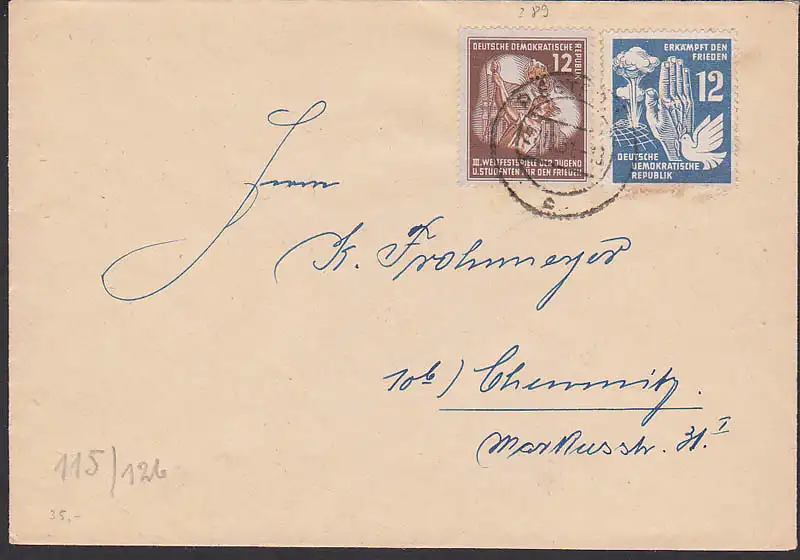 289
DEUTSCHE DEMOKRATISCHE
REPUBLIK
12
III. WELTFESTSPIELE DER JUGEND
U. STUDENTEN FÜR DEN FRIEDEN
ERKÄMPFT DEN
FRIEDEN
12
DEUTSCHE
DEMOKRATISCHE
REPUBLIK
Herrn
K. Frohmeyer
10b) Chemnitz.
Markusstr. 31.I
115/126
35,-